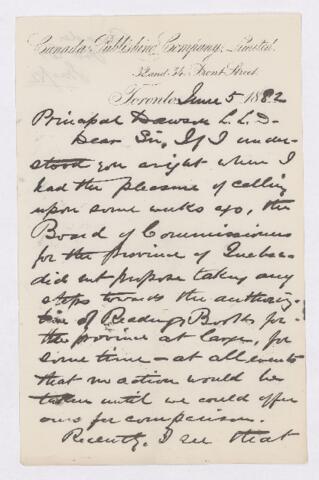 Canada Publishing Company, Limited.
32 and 34 Front Street.
Toronto June 5 1882
Principal Dawson L.L.D-
Dear Sir, If I under-
stood you aright when I
had the pleasure of calling
upon some weeks ago, the
Board of Commissioners
for the province of Quebec
did not propose taking any
steps towards the authoriz-
of Reading Books for
the province at large, for
some time - at all events
that no action would be
taken until we could offer
ours for comparison.
Recently, I see that